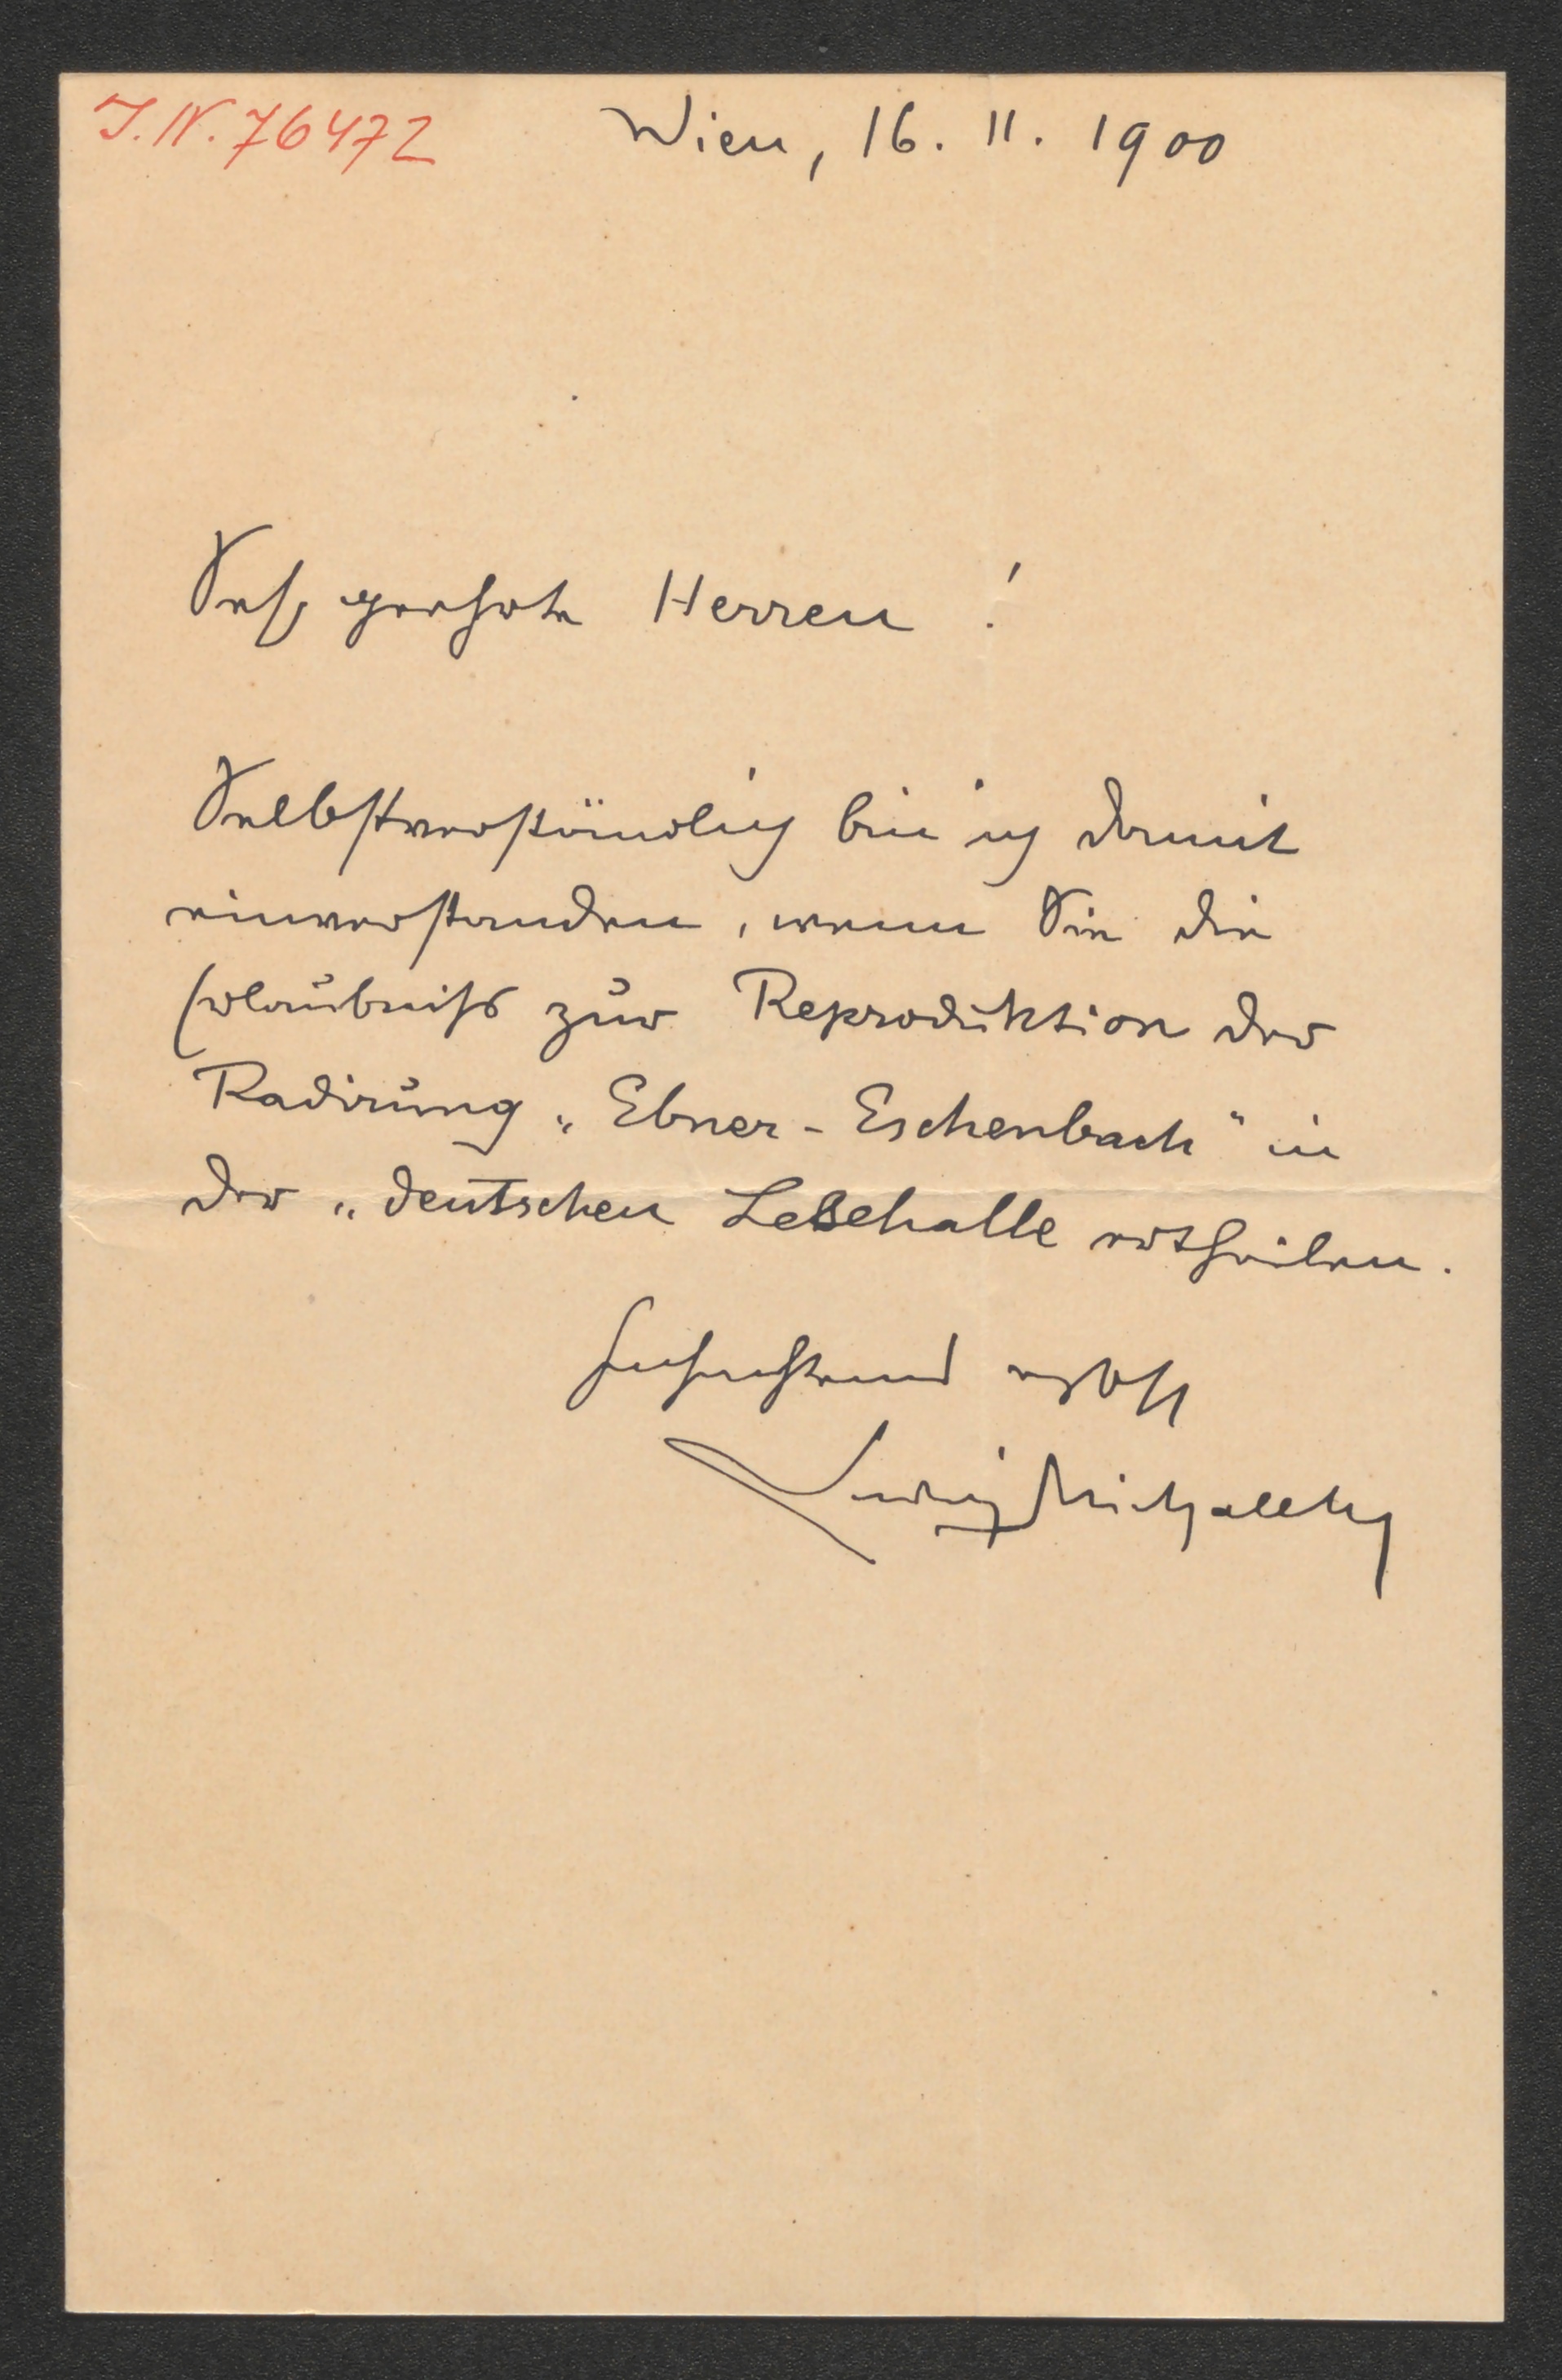 J.N. 76472
Wien, 16. 11. 1900
Sehr geehrte Herren !
Selbstverständlich bin ich damit
einverstanden, wenn Sie die
Erlaubniss zur Reproduktion der
Radirung „Ebner-Eschenbach" in
der „deutschen Lesehalle ertheilen.
Hochachtend ergbst
Ludwig Michalek